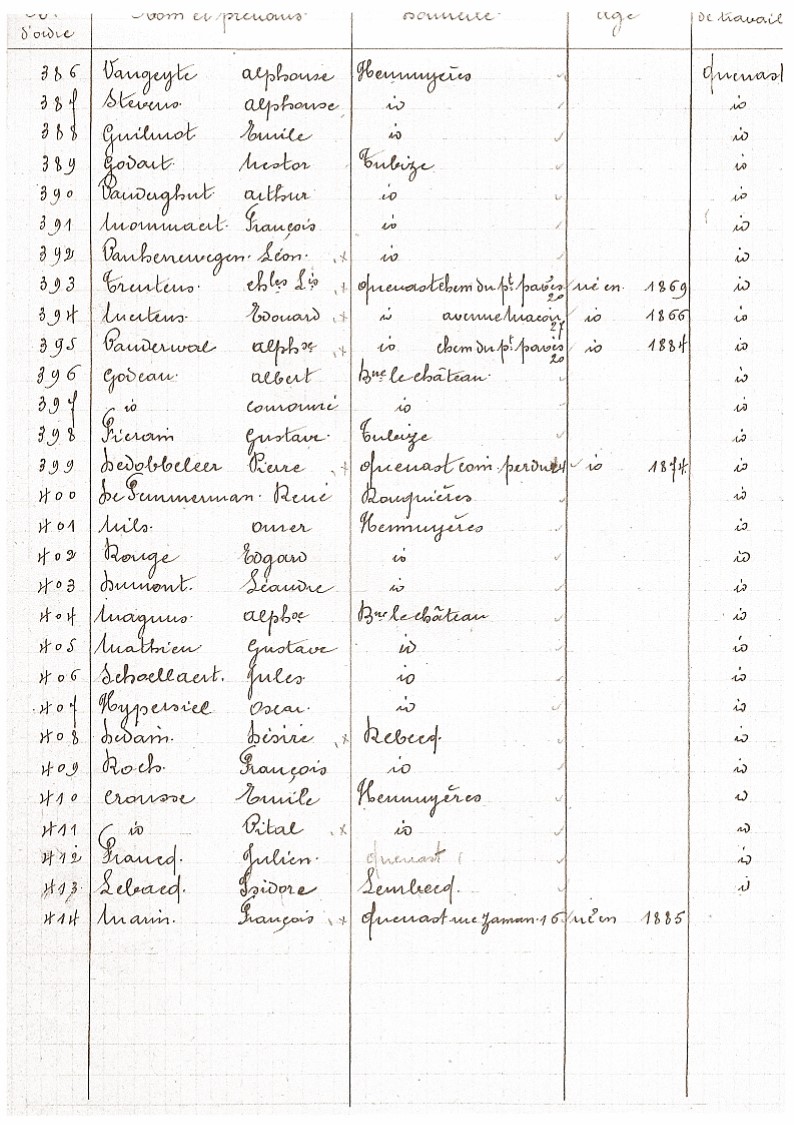 N° Nom et prénoms Domicile Age de travail
d'ordre
386 Vangeyte alphonse Hennuyères quenast
387 Stevens alphonse id id
388 Guilmot Emile id id
389 Godart Nestor Tubize id
390 Vanderghut arthur id id
391 Mommaert François id id
392 Léon id id
393 Treutens Chles Ls quenast chem du pt pavés 20 né en 1869 id
394 Mertens Edouard id avenue 27 id 1866 id
395 Vanderwal alphse id chem du pt pavés 20 id 1884 id
396 Godeau albert Bne le château id
397 id couronné id id
398 Pierain Gustave Tubize id
399 Dedobbeleer Pierre quenast coin perdu id 1874 id
400 De Timmerman René Ronquières id
401 Nils omer Hennuyères id
402 Rouge Edgard id id
403 Dumont Léandre id id
404 Magnus alphse Bne le château id
405 Mathieu Gustave id id
406 Schoellaert Jules id id
407 Hypersiel oscar id id
408 Dedain Désiré Rebecq id
409 Roch François id id
410 Crousse Emile Hennuyères id
411 id Vital id id
412 Francq Julien quenast id
413 Lebacq Isidore Lembecq id
414 Marin François quenast rue Zaman 16 né en 1885